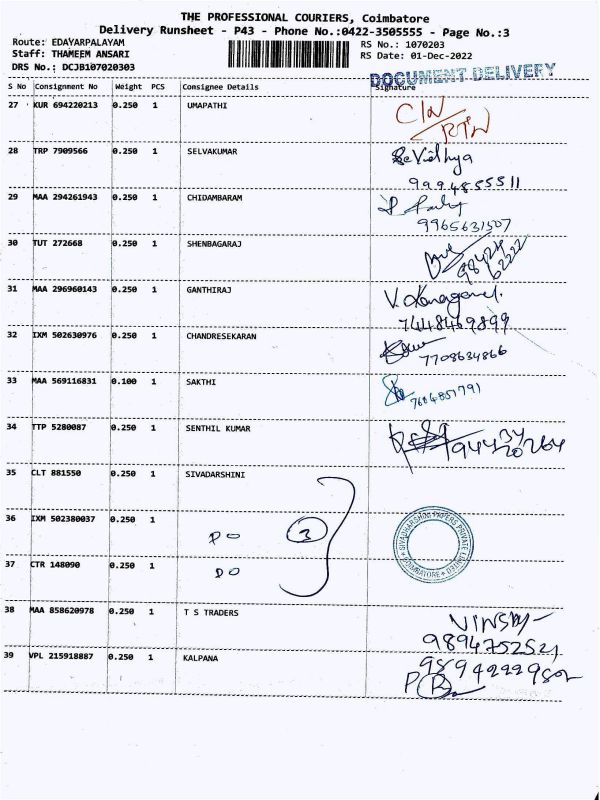 THE PROFESSIONAL COURIERS, Coimbatore
Delivery Runsheet - P43 - Phone No.:0422-3505555 - Page No.:3
Route: EDAYARPALAYAM RS No.: 1070203
Staff: THAMEEM ANSARI RS Date: 01-Dec-2022
DRS No.: DCJB107020303
DOCUMENT DELIVERY
S No Consignment No Weight PCS Consignee Details Signature
27 KUR 694220213 0.250 1 UMAPATHI
28 TRP 7909566 0.250 1 SELVAKUMAR
9994855511
29 MAA 294261943 0.250 1 CHIDAMBARAM
9965631507
30 TUT 272668 0.250 1 SHENBAGARAJ
98424
62222
31 MAA 296960143 0.250 1 GANTHIRAJ
7448469899
32 IXM 502630976 0.250 1 CHANDRESEKARAN
7708634866
33 MAA 569116831 0.100 1 SAKTHI
7604851791
34 TTP 5280087 0.250 1 SENTHIL KUMAR
35 CLT 881550 0.250 1 SIVADARSHINI
36 IXM 502380037 0.250 1
DO 3
37 CTR 148090 0.250 1
DO
SIVADHARSHINI PAPERS PRIVATE LIMITED
COIMBATORE
38 MAA 858620978 0.250 1 T S TRADERS
9894752521
39 VPL 215918887 0.250 1 KALPANA